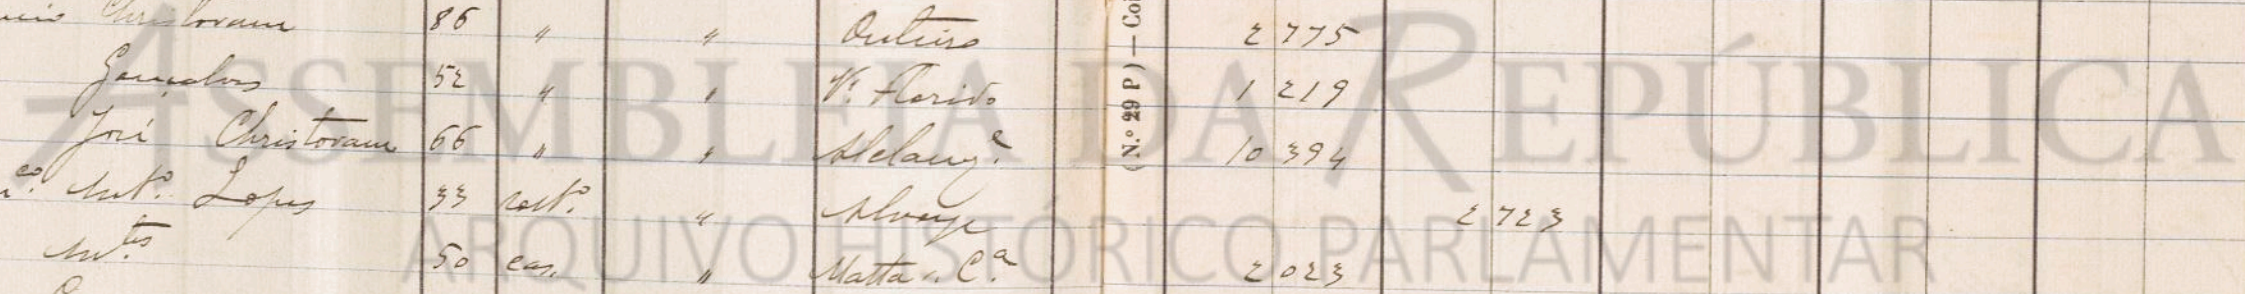 Christovam 86 " " Outeiro 2 775
Gonçalves 52 " " Vª. Florido 1 219
José Christovam 66 " " 10 394
Antº. Lopes 33 soltº. " Alvorge 2 723
50 cas. " Matta 2 023
(N.º 29 P) — Coi
ASSEMBLEIA DA REPÚBLICA
ARQUIVO HISTÓRICO PARLAMENTAR